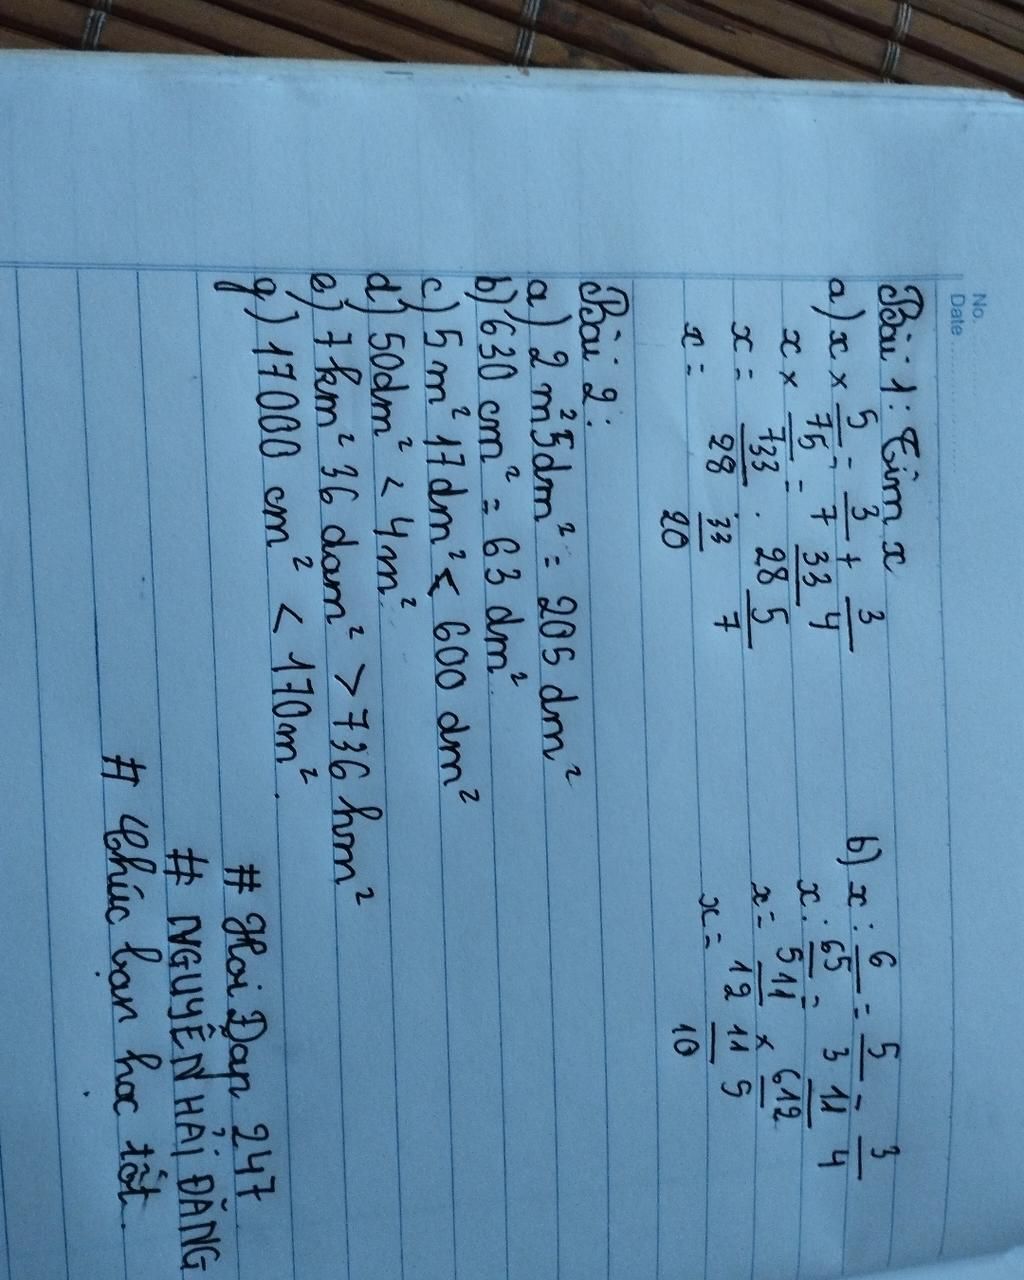 No.
Date
Bài 1: Tìm x
a) x × 5/7 = 3/7 + 3/4
x × 5/7 = 33/28
x = 33/28 : 5/7
x = 33/20
b) x : 6/5 = 5/3 - 3/4
x : 6/5 = 11/12
x = 11/12 × 6/5
x = 11/10
Bài 2:
a) 2 m² 5dm² = 205 dm²
b) 630 cm² = 63 dm²
c) 5 m² 17dm² < 600 dm²
d) 50dm² < 4m²
e) 7 km² 36 dam² > 736 hm²
g) 17000 cm² < 170m²
# Hoi Đap 247
# NGUYÊN HẢI ĐĂNG
# Chúc bạn học tốt.